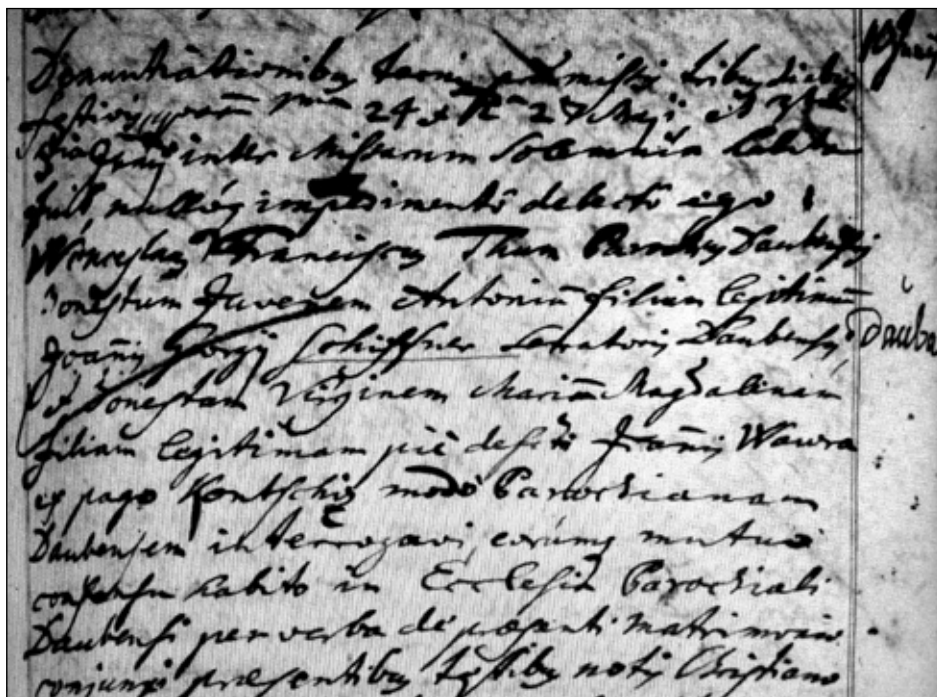 Denuntiationibus ternis præmissis tribus diebus
festivis, quarum 24 27 Maji et
Junij inter Missarum solemnia habita
fuit, nulloq impedimento detecto ego
Wenceslaus Franciscus Thum Parochus Daubensis
honestum Juvenem Antoniū filium legitimū
Joānis Georgij Schiffner Senatoris Daubensis,
et honestam Virginem Mariā Magdalenam
filiam legitimam piè defūcti Joānis Wawra
ex pago modo Parochianam
Daubensem interrogavi, eorumq mutuo
consensu habito in Ecclesia Parochiali
Daubensi per verba de præsenti matrimonio
conjunxi præsentibus testibus notis Christiano
10 Junij
Dauba